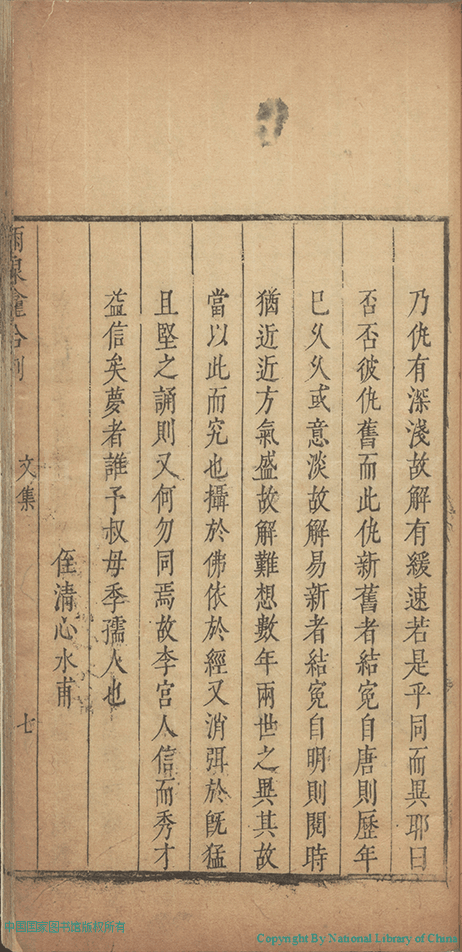 乃仇有深淺故解有緩速若是乎同而異耶曰
否否彼仇舊而此仇新舊者結寃自唐則歷年
已久久或意淡故解易新者結寃自明則閱時
猶近近方氣盛故解難想數年兩世之異其故
當以此而究也攝於佛依於經又消弭於旣猛
且堅之誦則又何勿同焉故李宮人信而秀才
益信矣夢者誰予叔母季孺人也
侄清心水甫
文集
七
中国国家图书馆版权所有
Copyright By National Library of China